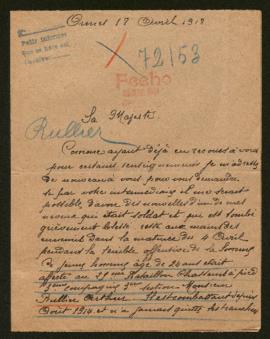 Ornes 18 Avril 1918
72/53
Fecho
Sa Majesté
Rullier
Comme ayant déjà eu recours à vous
pour certains renseignements je m'adresse
de nouveau à vous pour vous demander
si par votre il me serait
possible d'avoir des nouvelles d'un de mes
neveux qui était soldat et qui est tombé
grièvement blessé resté aux mains des
ennemis dans la matinée du 4 Avril
pendant la terrible offensive de la Somme
Ce jeune homme âgé de 24 ans était
affecté au Bataillon Chasseurs à pied
compagnie section Monsieur
Rullier Arthur Il est combattant depuis
Août 1914 et n'a jamais quitté les tranchées